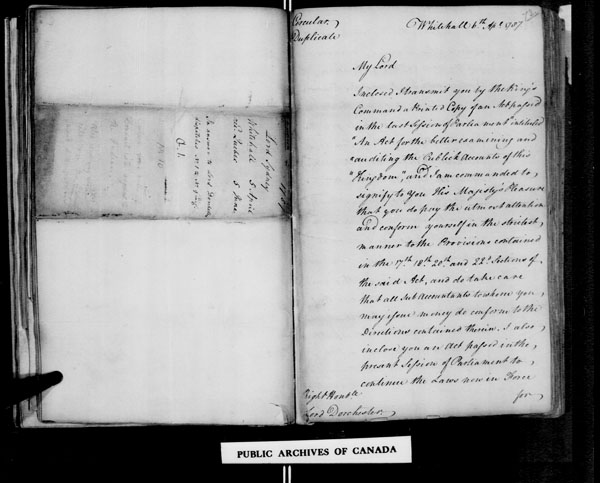 Lord Sydney
Whitehall 5 April
rec. Quebec 5 June
In answer to Lord
A. 1.
Circular.
Duplicate
Whitehall 6th Apl 1787
My Lord
Inclosed I transmit you by the King's
Command a Printed Copy of an Act passed
in the last Session of Parliament intituled
"An Act for the better examining and
"auditing the Publick Accounts of this
"Kingdom", and I am commanded to,
signify to You His Majesty's Pleasure
that you do pay the utmost attention
and conform yourself in the strictest
manner to the Provisions contained
in the 17th 18th 20th and 22d Sections of
the said Act, and do take care
that all Sub Accountants to whom you,
may issue money do conform to the
Directions contained therein. I also,
inclose you an Act passed in the,
present Session of Parliament to,
continue the Laws now in Force
for,
Right Honble
Lord Dorchester.
PUBLIC ARCHIVES OF CANADA